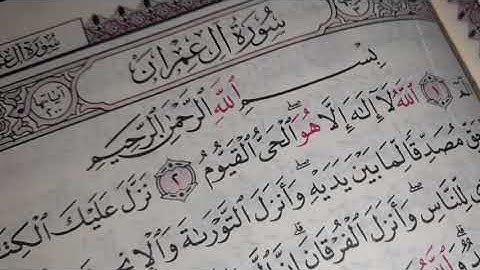 سُورَةُ آلِ عِمْرَانَ
آيَاتُهَا ٢٠٠
سُورَةُ آلِ عِمْ
بِسْمِ اللَّهِ الرَّحْمَنِ الرَّحِيمِ
١ اللَّهُ لَا إِلَهَ إِلَّا هُوَ الْحَيُّ الْقَيُّومُ ٢ نَزَّلَ عَلَيْكَ الْكِتَ
مُصَدِّقًا لِمَا بَيْنَ يَدَيْهِ وَأَنزَلَ التَّوْرَىٰةَ وَالْإِنجِ
لِلنَّاسِ وَأَنزَلَ الْفُرْقَانَ إِنَّ